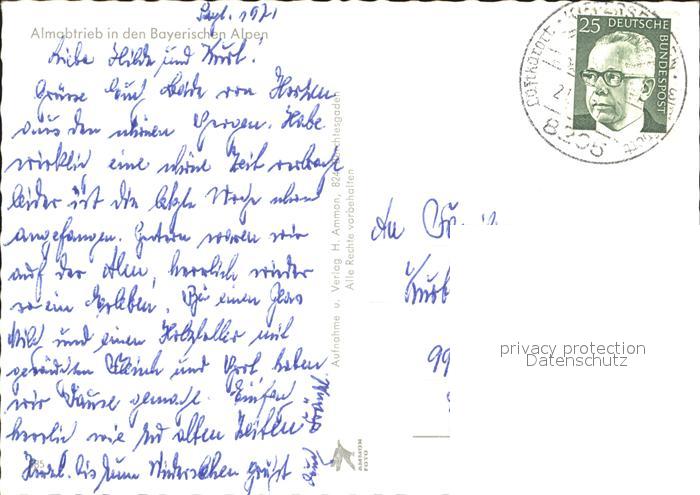 Sept. 1971
Almabtrieb in den Bayerischen Alpen
Liebe Hilde und Kurt!
Grüsse Euch Beide von Herzen
aus den schönen Bergen. Habe
wirklich eine schöne Zeit verbracht
leider ist die letzte Woche schon
angefangen. Gestern waren wir
auf der Alm, herrlich wieder
so ein Erleben. Bei einem Glas
Milch und einen Holzteller mit
geräuchten Fleisch und Brot haben
wir Pause gemacht. Einfach
herrlich wie zu alten Zeiten
Herzl. bis zum Wiedersehen grüßt
Aufnahme u. Verlag H. Ammon, Berchtesgaden
Alle Rechte vorbehalten
AMMON
FOTO
25 DEUTSCHE
BUNDESPOST
Luftkurort
An
Kurt
99
privacy protection
Datenschutz